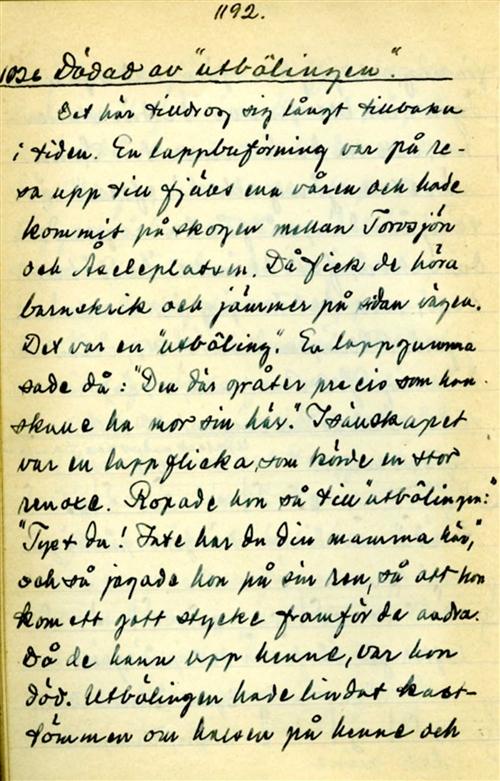 1192.
1026 Dödad av "utbölingen".
Det här tilldrog sig långt tillbaka
i tiden. En lappbuförning var på re-
sa upp till fjälls ena våren och hade
kommit på skogen mellan Torvsjön
och Åseleplatsen. Då fick de höra
barnskrik och jämmer på sidan vägen.
Det var en "utböling". En lappgumma
sade då: "Den där gråter precis som han
skulle ha mor sin här." I sällskapet
var en lappflicka, som körde en stor
renoxe. Ropade hon så till "utbölingen:"
"Tyst du! Inte har du din mamma här,"
och så jagade hon på sin ren, så att hon
kom ett gott stycke framför de andra.
Då de hann upp henne, var hon
död. Utbölingen hade lindat kast-
tömmen om halsen på henne och